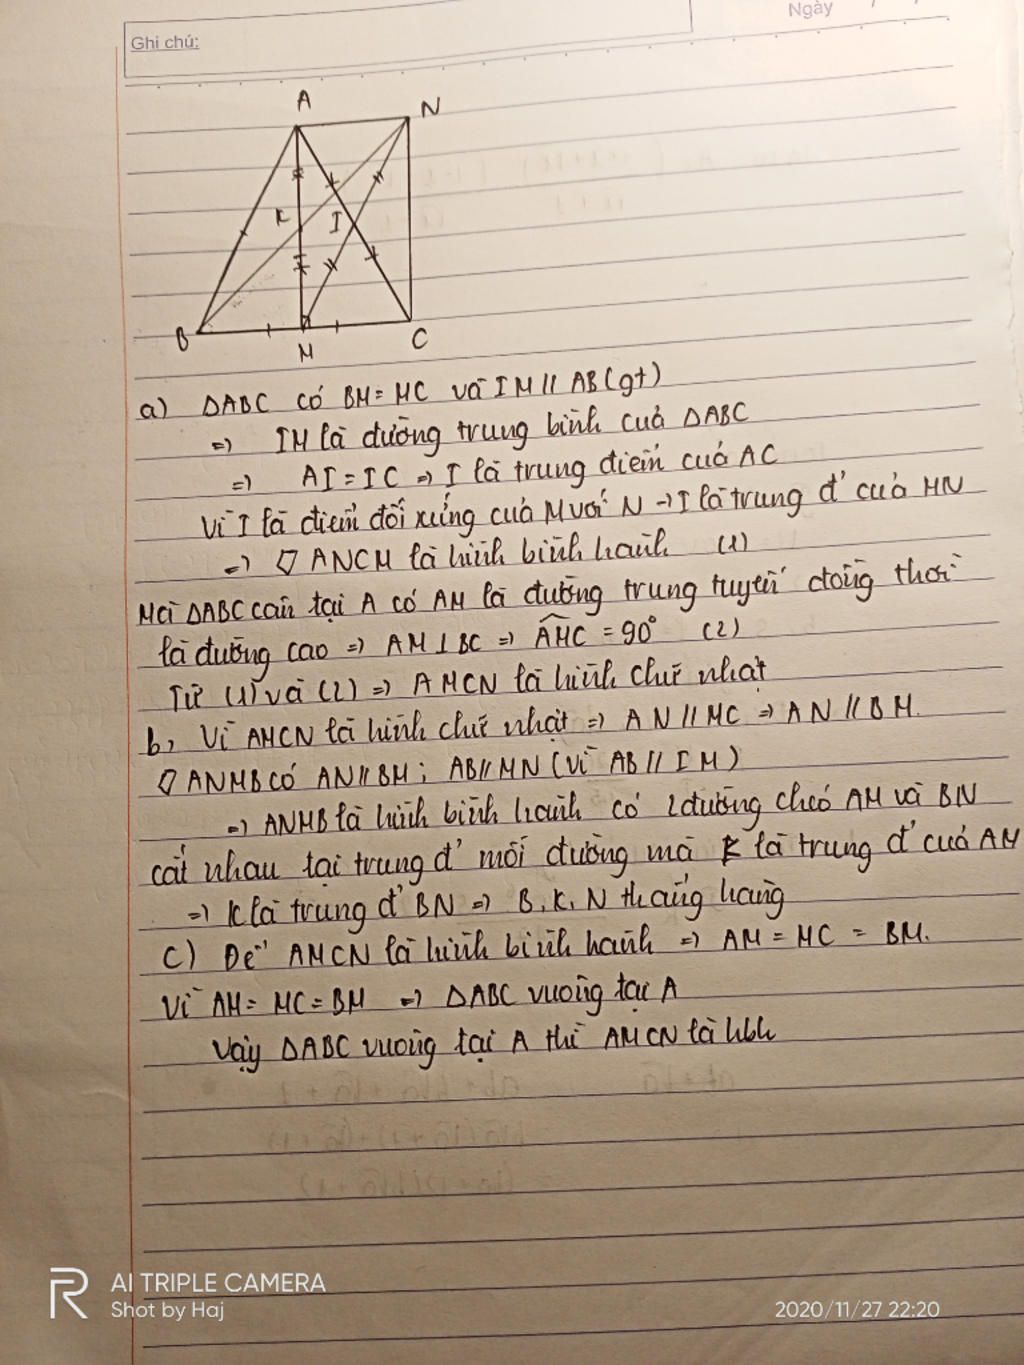 Ngày
Ghi chú:
A
N
K
I
B
M
C
a) ΔABC có BM = MC và IM // AB (gt)
=> IM là đường trung bình của ΔABC
=> AI = IC => I là trung điểm của AC
Vì I là điểm đối xứng của M với N → I là trung đ' của MN
=> ▱ ANCM là hình bình hành (1)
Mà ΔABC cân tại A có AM là đường trung tuyến đồng thời
là đường cao => AM ⊥ BC => AMC = 90° (2)
Từ (1) và (2) => AMCN là hình chữ nhật
b, Vì AMCN là hình chữ nhật => AN // MC => AN // BM.
▱ ANMB có AN // BM ; AB // MN (vì AB // IM)
=> ANMB là hình bình hành có 2 đường chéo AM và BN
cắt nhau tại trung đ' mỗi đường mà K là trung đ' của AM
=> K là trung đ' BN => B, K, N thẳng hàng
c) Để AMCN là hình bình hành => AM = MC = BM.
Vì AM = MC = BM => ΔABC vuông tại A
Vậy ΔABC vuông tại A thì AMCN là hbh
AI TRIPLE CAMERA
Shot by Haj
2020/11/27 22:20